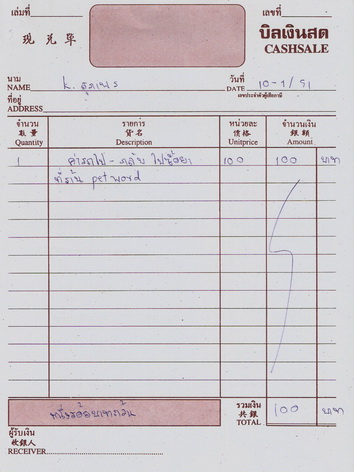 เล่มที่ เลขที่
現兌單
บิลเงินสด
CASHSALE
นาม
NAME
วันที่
DATE 10-1/51
เลขประจำตัวผู้เสียภาษี
ที่อยู่
ADDRESS
จำนวน รายการ หน่วยละ จำนวนเงิน
數量 貨名 價格 銀額
Quantity Description Unitprice Amount
1 ค่ารถไป - กลับ ไปซื้อยา 100 100 บาท
ที่ร้าน pet word
รวมเงิน
共銀
TOTAL 100 บาท
หนึ่งร้อยบาทถ้วน
ผู้รับเงิน
收銀人
RECEIVER